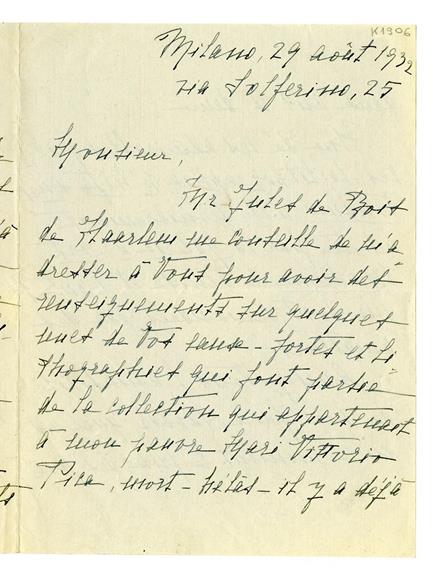 K1906
Milano, 29 août 1932
via Solferino, 25
Monsieur,
Mr Jules de Bois
de Haarlem me conseille de m'a
dresser à Vous pour avoir des
renseignements sur quelques
unes de Vos eaux-fortes et li
thographies qui font partie
de la collection qui appartenait
à mon pauvre Mari Vittorio
Pica, mort - hélas - il y a déjà